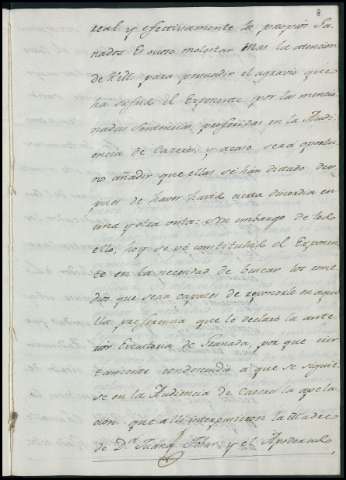 8
real y efectivamente la propios Sa-
grados. Es ocioso molestar mas la atencion
de V.M. para persuadir el agravio que
ha sufrido el Exponente por las mencio-
nadas Sentencias proferidas en la Audi-
encia de Caceres; y acaso será opor-
no añadir que ellas se han dictado des-
pues de haver havido discordia en
una y otra vista: Sin embargo de todo
ello, hoy se vé constituido el Exponen-
te en la necesidad de buscar los me-
dios que sean capaces de reponerle en aque-
lla preferencia que le declaró la ante-
rior Executoria de Granada, por que cier-
tamente condescendió a que se siguie-
se en la Audiencia de Caceres la apela-
cion que alli interpusieron la Madre
de Dn. Juan Tobar y el Apoderado